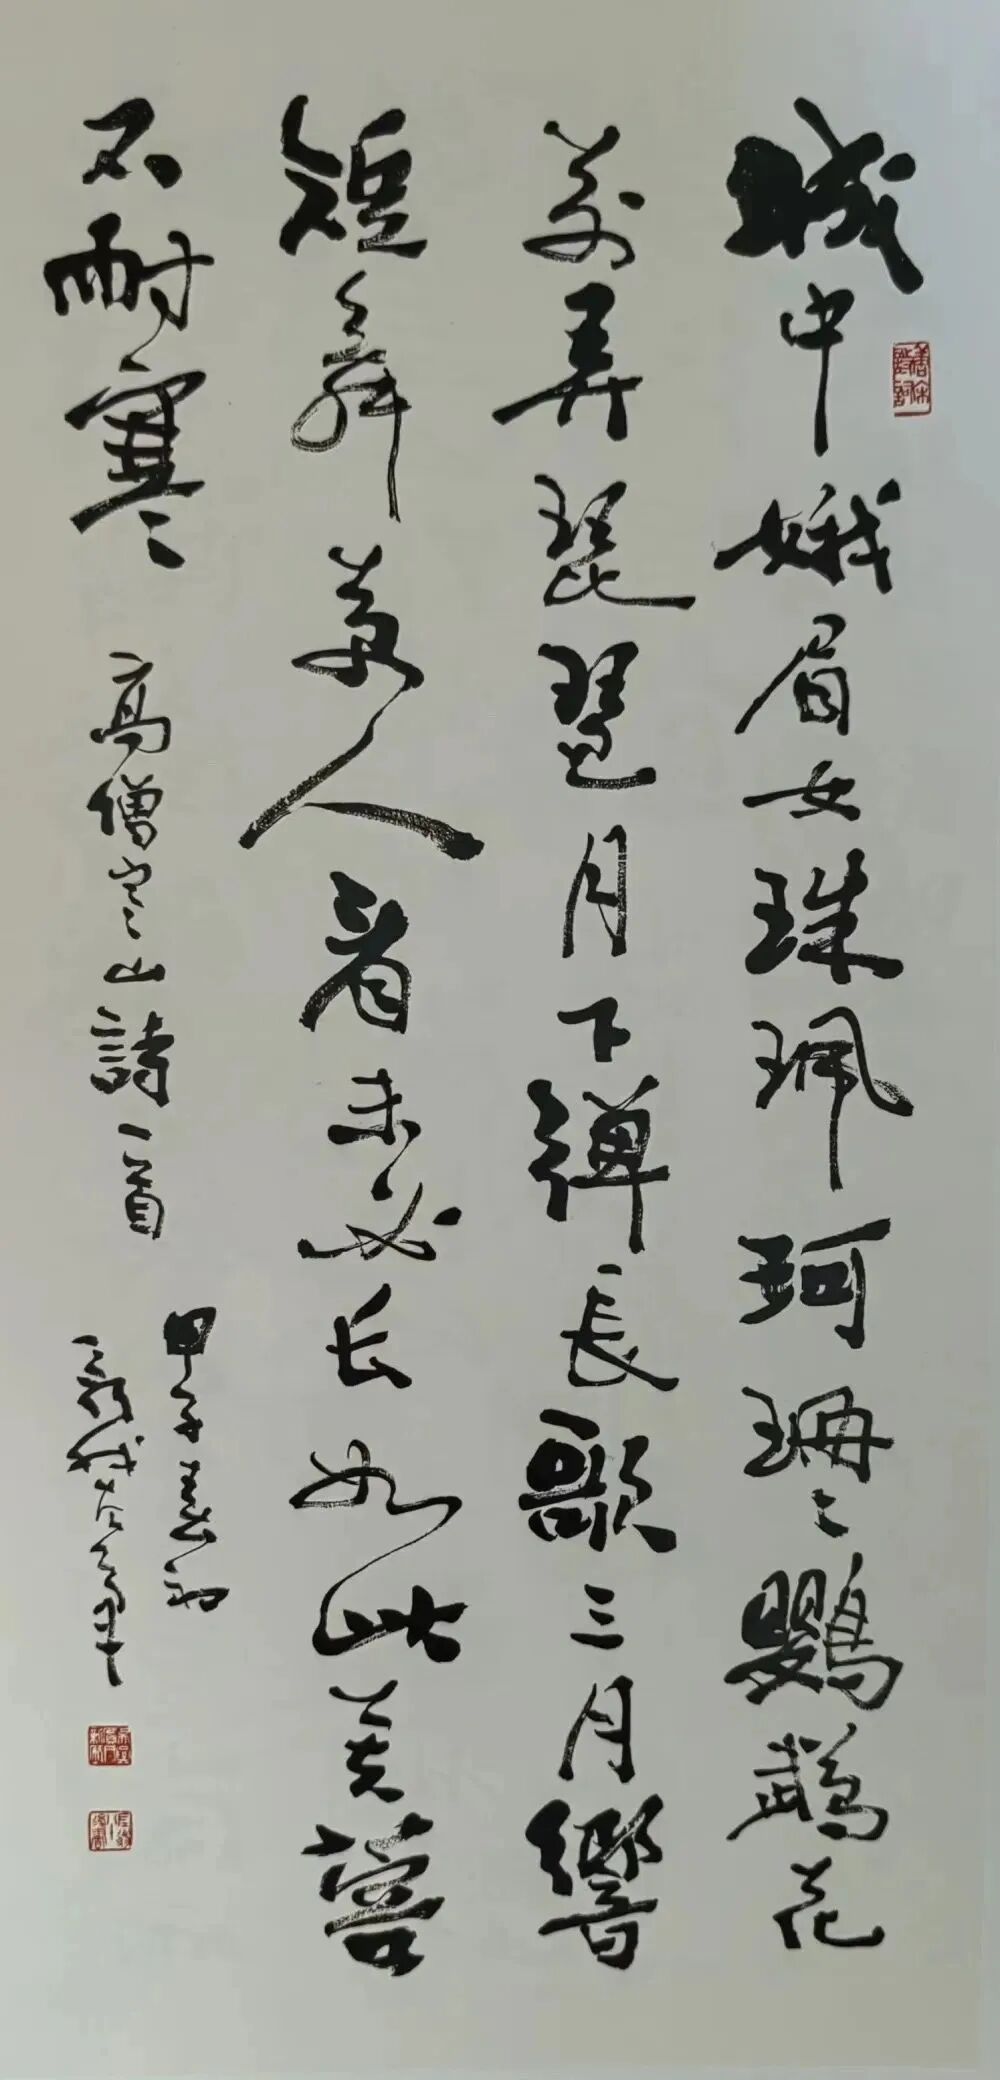 城中娥眉女珠珮珂珊〻鸚鵡花
前弄琵琶月下彈長歌三月響
短舞萬人看未必长如此芙蓉
不耐寒 高僧寒山詩一首
甲子春初